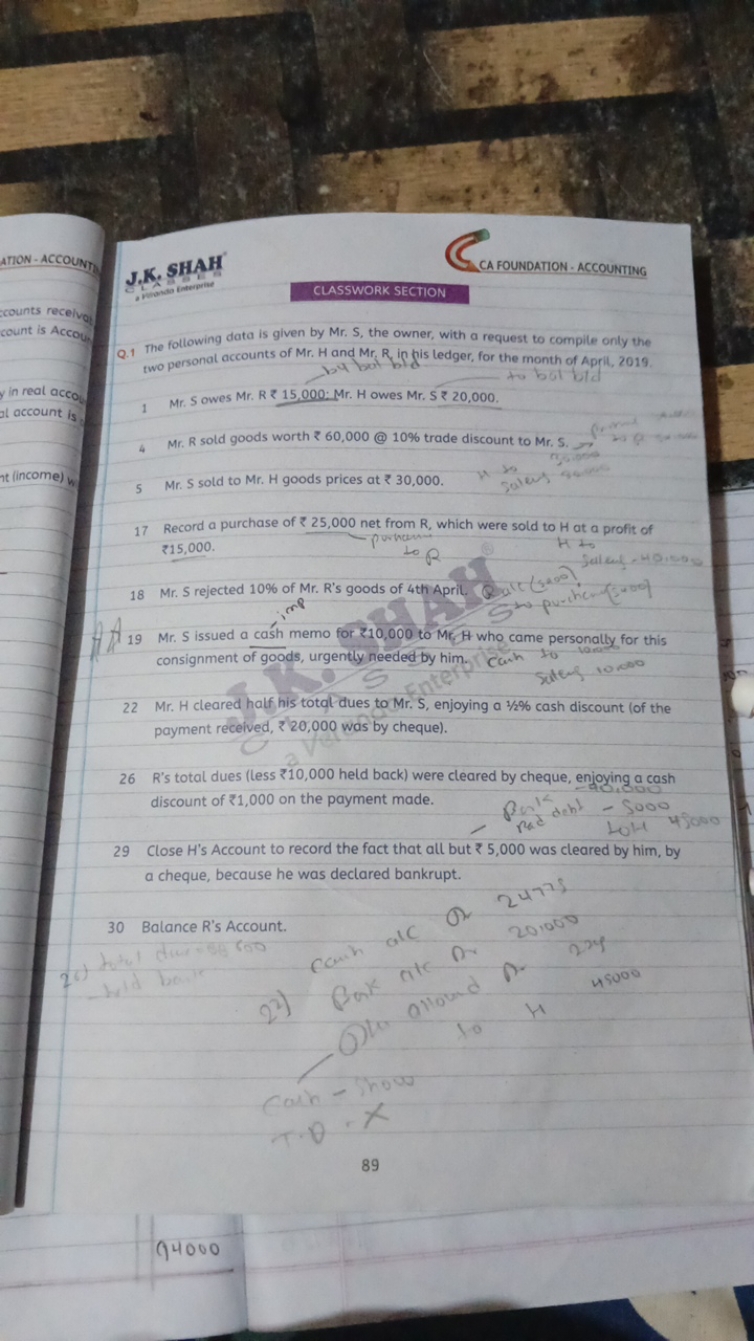 ATION - ACCOUNTI
J.K. SHAH
CLASSES
a Veranda Enterprise
CA FOUNDATION - ACCOUNTING
CLASSWORK SECTION
count is Accou
y in real accou
al account is
nt (income) w
Q.1 The following data is given by Mr. S, the owner, with a request to compile only the
two personal accounts of Mr. H and Mr. R, in his ledger, for the month of April, 2019.
by bal b/d
to bal b/d
1 Mr. S owes Mr. R ₹ 15,000; Mr. H owes Mr. S ₹ 20,000.
4 Mr. R sold goods worth ₹ 60,000 @ 10% trade discount to Mr. S.
5 Mr. S sold to Mr. H goods prices at ₹ 30,000.
H to
17 Record a purchase of ₹ 25,000 net from R, which were sold to H at a profit of
₹15,000.
to R
H to
Sales - 40,000
18 Mr. S rejected 10% of Mr. R's goods of 4th April.
imp
19 Mr. S issued a cash memo for ₹10,000 to Mr. H who came personally for this
consignment of goods, urgently needed by him.
Cash to
Sales 10,000
22 Mr. H cleared half his total dues to Mr. S, enjoying a ½% cash discount (of the
payment received, ₹ 20,000 was by cheque).
26 R's total dues (less ₹10,000 held back) were cleared by cheque, enjoying a cash
discount of ₹1,000 on the payment made.
Bank - 40,000
Bad debt - 5000
to H 45000
29 Close H's Account to record the fact that all but ₹ 5,000 was cleared by him, by
a cheque, because he was declared bankrupt.
30 Balance R's Account.
Cash a/c Dr 24775
22) Bank a/c Dr 20,000
to H 45000
Cash - Show
T.D - X
J.K. SHAH
CLASSES
a Veranda Enterprise
89
94000